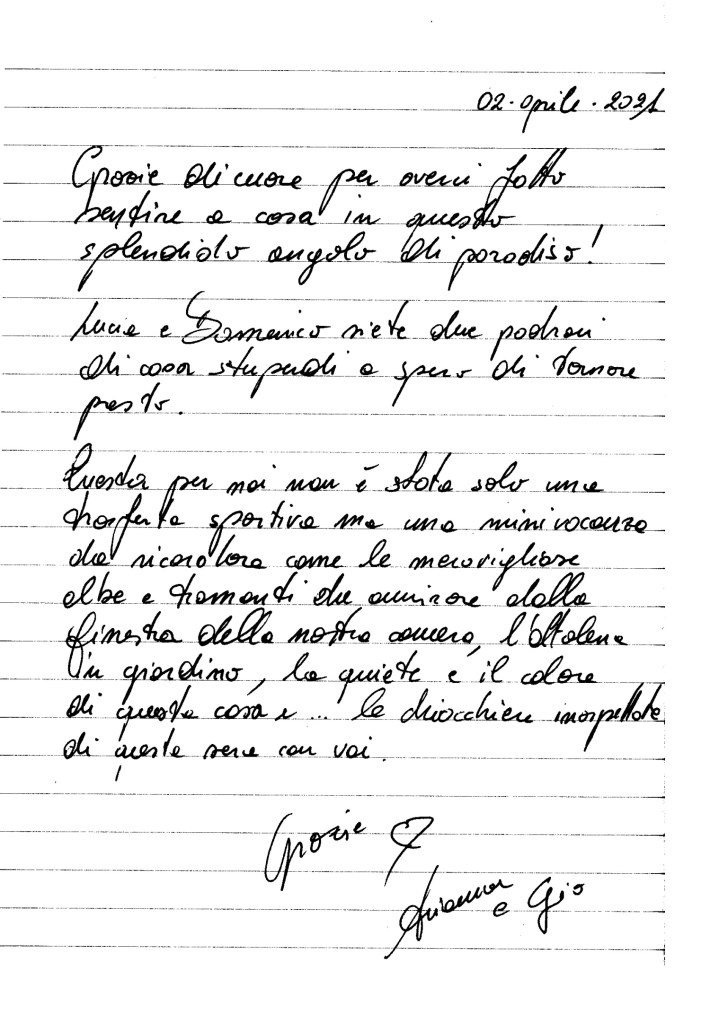 02. aprile. 2021
Grazie di cuore per averci fatto
sentire a casa in questo
splendido angolo di paradiso!
Lucia e Domenico siete due padroni
di casa stupendi e spero di tornare
presto.
Questa per noi non è stata solo una
trasferta sportiva ma una minivacanza
da ricordare come le meravigliose
albe e tramonti da ammirare dalla
finestra della nostra camera, l'altalena
in giardino, la quiete e il calore
di questa casa e ... le chiacchiere inaspettate
di queste sere con voi.
Grazie ♡
Arianna
e Gio